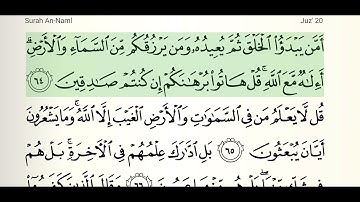 Surah An-Naml
Juz' 20
أَمَّن يَبْدَؤُا۟ ٱلْخَلْقَ ثُمَّ يُعِيدُهُۥ وَمَن يَرْزُقُكُم مِّنَ ٱلسَّمَآءِ وَٱلْأَرْضِ ۗ
أَءِلَٰهٌ مَّعَ ٱللَّهِ ۚ قُلْ هَاتُوا۟ بُرْهَٰنَكُمْ إِن كُنتُمْ صَٰدِقِينَ ٦٤
قُل لَّا يَعْلَمُ مَن فِى ٱلسَّمَٰوَٰتِ وَٱلْأَرْضِ ٱلْغَيْبَ إِلَّا ٱللَّهُ ۚ وَمَا يَشْعُرُونَ
أَيَّانَ يُبْعَثُونَ ٦٥ بَلِ ٱدَّٰرَكَ عِلْمُهُمْ فِى ٱلْءَاخِرَةِ ۚ بَلْ هُمْ